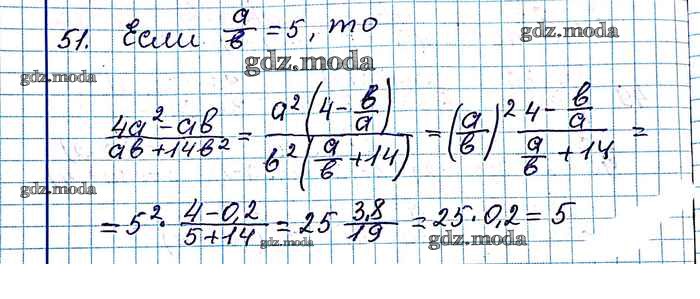 51. Если a/b = 5, то
gdz.moda
gdz.moda
gdz.moda
(4a² - ab)/(ab + 14b²) = (a²(4 - b/a))/(b²(a/b + 14)) = (a/b)² (4 - b/a)/(a/b + 14) =
gdz.moda
gdz.moda
= 5² · (4 - 0,2)/(5 + 14) = 25 3,8/19 = 25 · 0,2 = 5
gdz.moda
gdz.moda